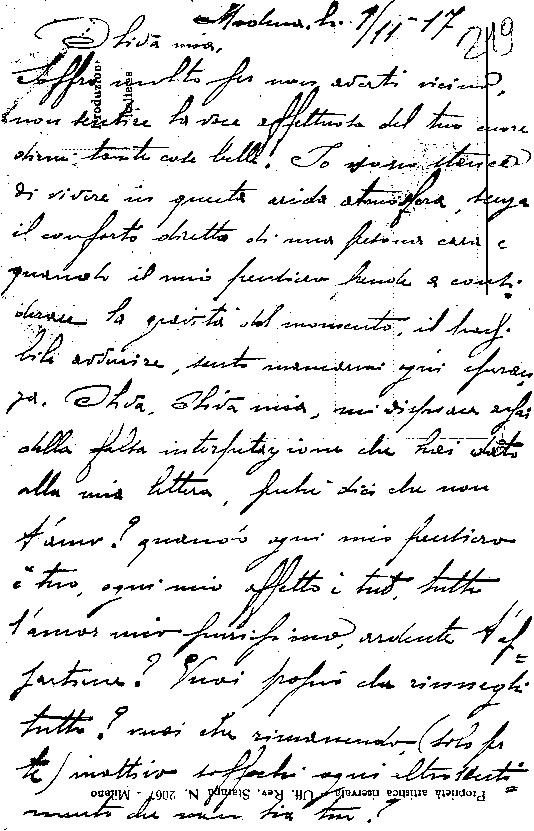 Modena, li. 9/11-17
219
Oliva mia,
Soffro molto per non averti vicino,
non sentire la voce affettuosa del tuo cuore
dirmi tante cose belle! Io sono stanco
di vivere in questa arida atmosfera, senza
il conforto diretto di una persona cara e
quando il mio pensiero tende a consi-
derare la gravità del momento, il
avvenire, sento mancarmi ogni speran
za. Oliva, Oliva mia, mi dispiace assai
della falsa interpetazione che hai dato
alla mia lettera, perché dici che non
t'amo? quando ogni mio pensiero
è tuo, ogni mio affetto è tuo, tutto
l'amor mio purissimo, ardente t'ap=
partiene? Vuoi proprio che rinneghi
tutto? vuoi che rimanendo (solo per
te) inattivo soffochi ogni altro senti=
mento che non sia tuo?
riproduzion.
italiana
Proprietà artistica riservata - Uff. Rev. Stampa N. 2067 - Milano